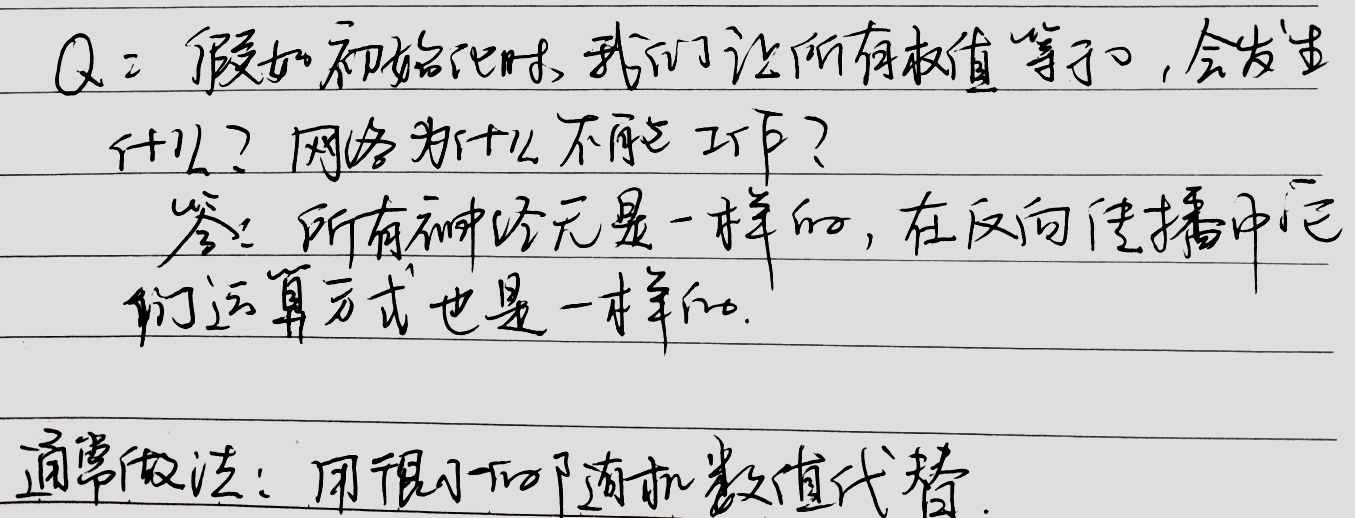 Q: 假如初始化时、我们让所有权值等于0，会发生
什么？网络为什么不能工作？
答：所有神经元是一样的，在反向传播中它
们运算方式也是一样的.
通常做法：用很小的随机数值代替.